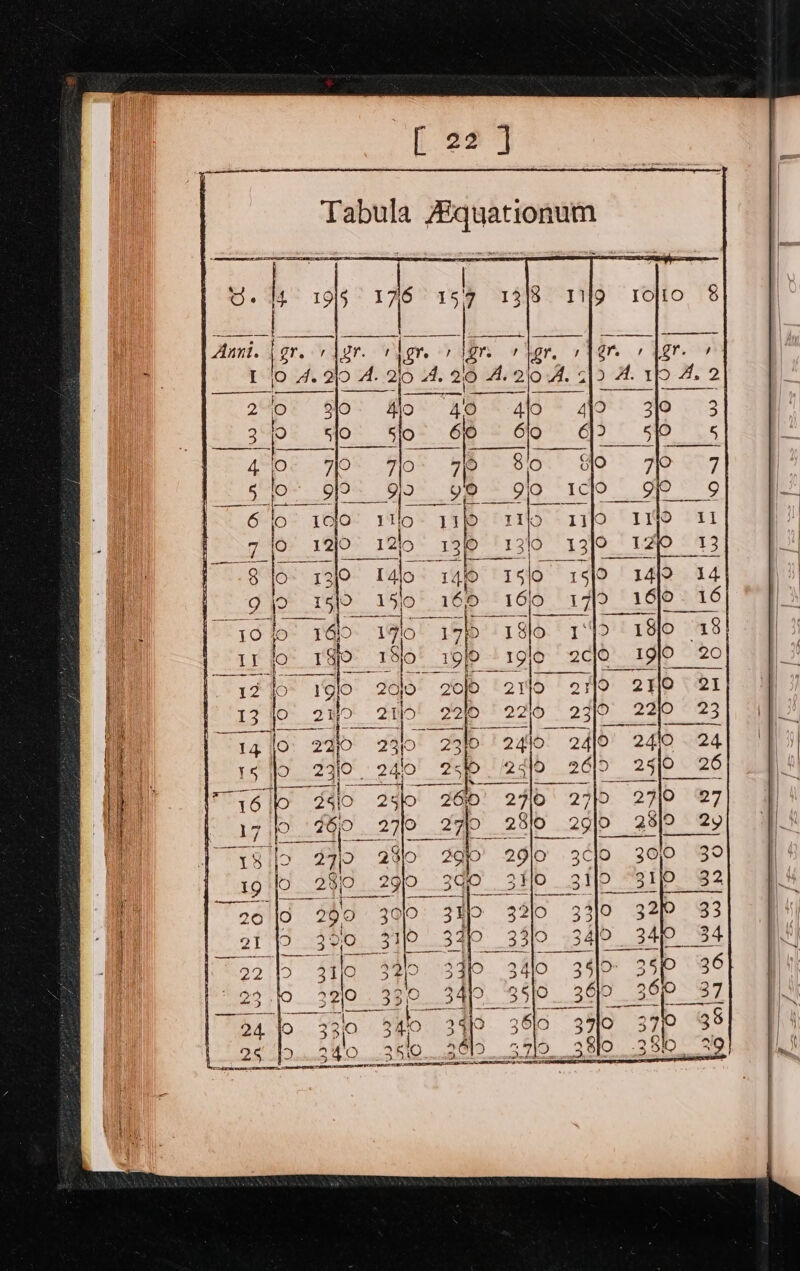 [ 22 ]
Tabula Æquationum
♉. 4 19 | 5 17 | 6 15 | 7 13 | 8 11 | 9 10 | 10 8
Anni. | gr. ′ | gr. ′ | gr. ′ | gr. ′ | gr. ′ | gr. ′ | gr. ′
1 | 0 A. 2 | 0 A. 2 | 0 A. 2 | 0 A. 2 | 0 A. 2 | 0 A. 1 | 0 A. 2
2 | 0 3 | 0 4 | 0 4 | 0 4 | 0 4 | 0 3 | 0 3
3 | 0 5 | 0 5 | 0 6 | 0 6 | 0 6 | 0 5 | 0 5
4 | 0 7 | 0 7 | 0 7 | 0 8 | 0 8 | 0 7 | 0 7
5 | 0 9 | 0 9 | 0 9 | 0 9 | 0 10 | 0 9 | 0 9
6 | 0 10 | 0 11 | 0 11 | 0 11 | 0 11 | 0 11 | 0 11
7 | 0 12 | 0 12 | 0 13 | 0 13 | 0 13 | 0 12 | 0 13
8 | 0 13 | 0 14 | 0 14 | 0 15 | 0 15 | 0 14 | 0 14
9 | 0 15 | 0 15 | 0 16 | 0 16 | 0 17 | 0 16 | 0 16
10 | 0 16 | 0 17 | 0 17 | 0 18 | 0 | 0 18 | 0 18
11 | 0 18 | 0 18 | 0 19 | 0 19 | 0 20 | 0 19 | 0 20
12 | 0 19 | 0 20 | 0 20 | 0 21 | 0 21 | 0 21 | 0 21
13 | 0 21 | 0 21 | 0 22 | 0 22 | 0 23 | 0 22 | 0 23
14 | 0 22 | 0 23 | 0 23 | 0 24 | 0 24 | 0 24 | 0 24
15 | 0 23 | 0 24 | 0 25 | 0 25 | 0 26 | 0 25 | 0 26
16 | 0 25 | 0 25 | 0 26 | 0 27 | 0 27 | 0 27 | 0 27
17 | 0 26 | 0 27 | 0 27 | 0 28 | 0 29 | 0 28 | 0 29
18 | 0 27 | 0 28 | 0 29 | 0 29 | 0 30 | 0 30 | 0 30
19 | 0 28 | 0 29 | 0 30 | 0 31 | 0 31 | 0 31 | 0 32
20 | 0 29 | 0 30 | 0 31 | 0 32 | 0 33 | 0 32 | 0 33
21 | 0 30 | 0 31 | 0 32 | 0 33 | 0 34 | 0 34 | 0 34
22 | 0 31 | 0 32 | 0 33 | 0 34 | 0 35 | 0 35 | 0 36
23 | 0 32 | 0 33 | 0 34 | 0 35 | 0 36 | 0 36 | 0 37
24 | 0 33 | 0 34 | 0 35 | 0 36 | 0 37 | 0 37 | 0 38
25 | 0 34 | 0 35 | 0 36 | 0 37 | 0 38 | 0 38 | 0 39